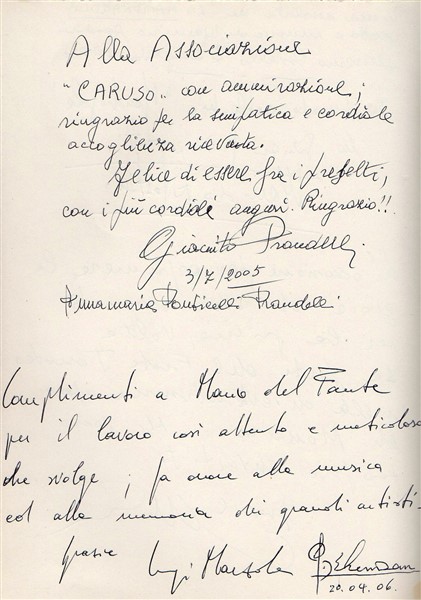 Alla Associazione
"CARUSO" con ammirazione;
ringrazio per la simpatica e cordiale
accoglienza ricevuta.
Felice di essere fra i prescelti,
con i più cordiali auguri. Ringrazio!!
Giacinto Prandelli
3/7/2005
Annamaria Ponticelli Prandelli
Complimenti a Mario del Fante
per il lavoro così attento e meticoloso
che svolge; fa onore alla musica
ed alla memoria dei grandi artisti.
Grazie
Luigi
20.04.06.